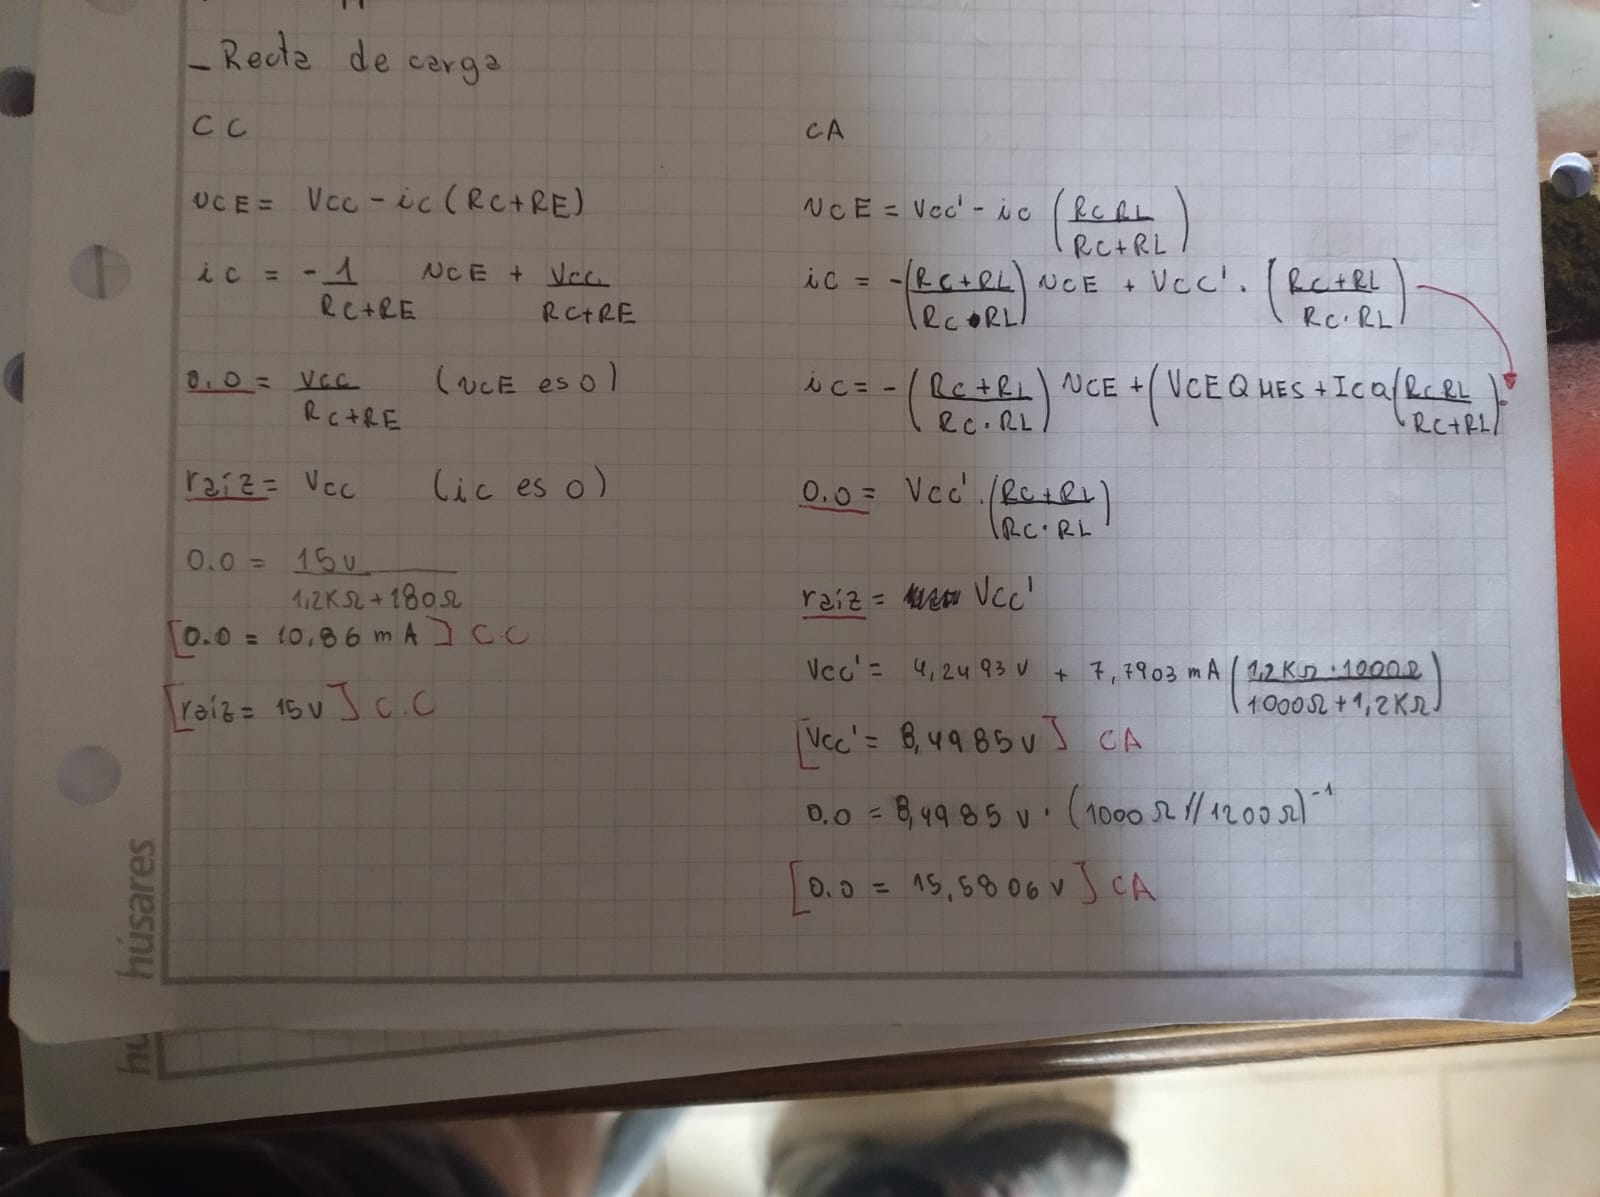 - Recta de carga
CC
VCE = Vcc - ic (RC+RE)
ic = - 1/(RC+RE) VCE + Vcc/(RC+RE)
0.0 = Vcc/(RC+RE) (VCE es 0)
raíz = Vcc (ic es 0)
0.0 = 15v/(1,2KΩ+180Ω)
[0.0 = 10,86 mA] C.C
[raíz = 15v] C.C
CA
VCE = Vcc' - ic (RC RL/(RC+RL))
ic = -((RC+RL)/(RC·RL)) VCE + VCC' · ((RC+RL)/(RC·RL))
ic = -((RC+RL)/(RC·RL)) VCE + (VCEQ MES + ICQ (RC RL/(RC+RL)) ·
0.0 = Vcc' · ((RC+RL)/(RC·RL))
raíz = Vcc'
Vcc' = 4,2493 v + 7,7903 mA (1,2KΩ·1000Ω/(1000Ω+1,2KΩ))
[Vcc' = 8,4985 v] CA
0.0 = 8,4985 v · (1000Ω//1200Ω)⁻¹
[0.0 = 15,5806 v] CA
húsares
hú